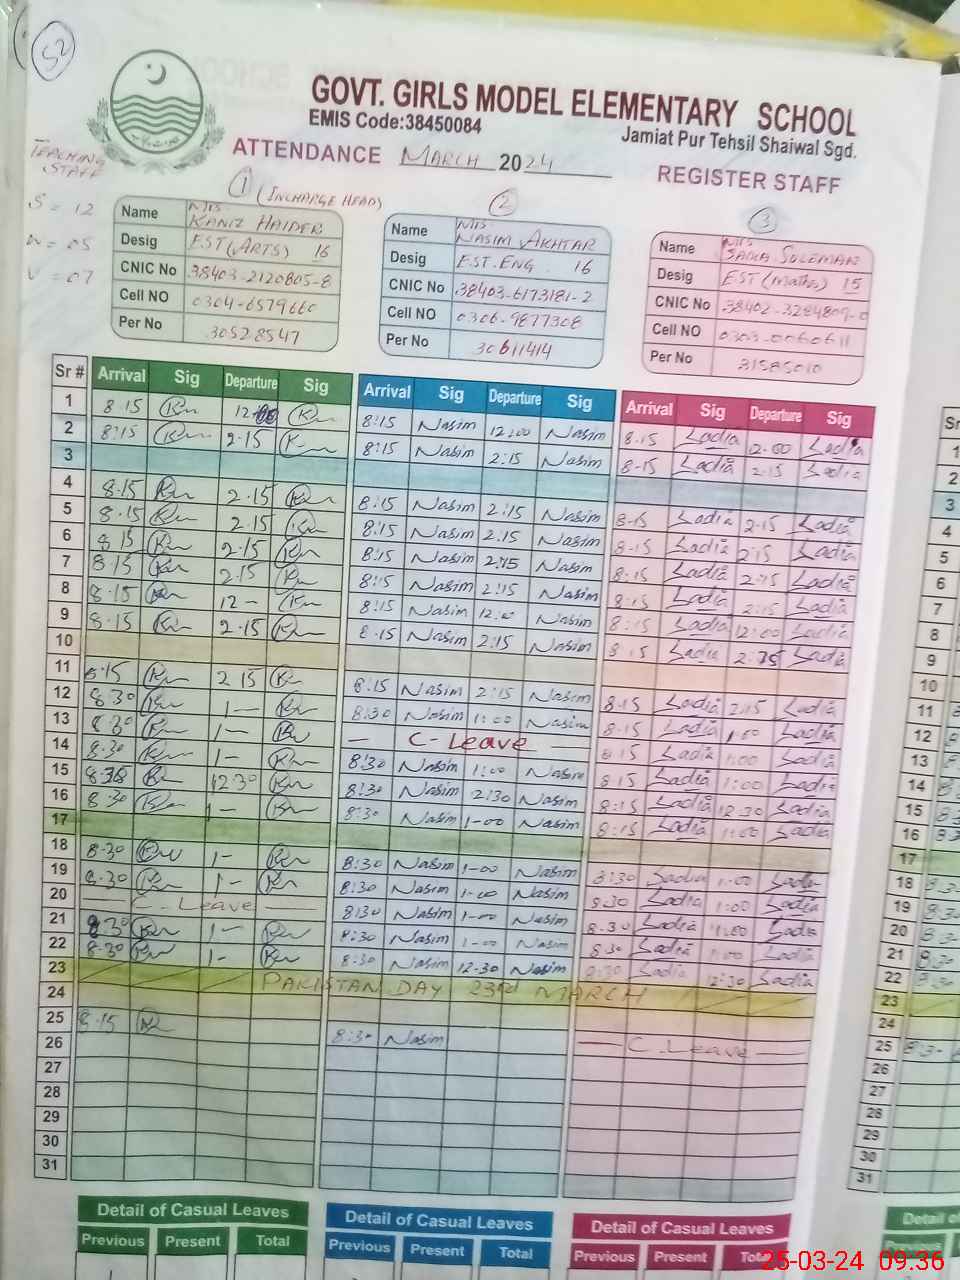 52
GOVT. GIRLS MODEL ELEMENTARY SCHOOL
EMIS Code:38450084
Jamiat Pur Tehsil Shaiwal Sgd.
ATTENDANCE MARCH 2024
REGISTER STAFF
TEACHING STAFF
S = 12
W = 05
V = 07
1 (INCHARGE HEAD)
Name MIS KANIZ HAIDER
Desig EST (ARTS) 16
CNIC No 38403-2120805-8
Cell NO 0304-6579660
Per No 30528547
2
Name MIS NASIM AKHTAR
Desig EST. ENG. 16
CNIC No 38403-6173181-2
Cell NO 0306-9877308
Per No 30611414
3
Name MIS SADIA SULEMAN
Desig EST (Maths) 15
CNIC No 38402-3284809-0
Cell NO 0303-0060611
Per No 31585010
Sr # Arrival Sig Departure Sig Arrival Sig Departure Sig Arrival Sig Departure Sig
1 8.15 12 8:15 Nasim 12:00 Nasim 8.15 Sadia 12.00 Sadia
2 8:15 2.15 8:15 Nasim 2:15 Nasim 8-15 Sadia 2.15 Sadia
3
4 8.15 2.15 8:15 Nasim 2:15 Nasim 8-15 Sadia 2-15 Sadia
5 8.15 2.15 8:15 Nasim 2:15 Nasim 8-15 Sadia 2:15 Sadia
6 8.15 2.15 8:15 Nasim 2:15 Nasim 8:15 Sadia 2:15 Sadia
7 8.15 2.15 8:15 Nasim 2:15 Nasim 8:15 Sadia 2:15 Sadia
8 8.15 12 — 8:15 Nasim 12:00 Nasim 8:15 Sadia 12:00 Sadia
9 8.15 2.15 8.15 Nasim 2:15 Nasim 8:15 Sadia 2:15 Sadia
10
11 8.15 2.15 8:15 Nasim 2:15 Nasim 8.15 Sadia 2:15 Sadia
12 8.30 1 — 8:30 Nasim 1:00 Nasim 8.15 Sadia 1.00 Sadia
13 8.30 1 — — C-Leave — 8.15 Sadia 1:00 Sadia
14 8.30 1 - 8:30 Nasim 1:00 Nasim 8.15 Sadia 1:00 Sadia
15 8.30 12.30 8:30 Nasim 12:30 Nasim 8:15 Sadia 12.30 Sadia
16 8.30 1 - 8:30 Nasim 1-00 Nasim 8:15 Sadia 1:00 Sadia
17
18 8.30 1 - 8:30 Nasim 1-00 Nasim 8:30 Sadia 1:00 Sadia
19 8.30 1 - 8:30 Nasim 1-00 Nasim 8:30 Sadia 1:00 Sadia
20 — C. Leave — 8:30 Nasim 1-00 Nasim 8.30 Sadia 1:00 Sadia
21 8.30 1 - 8:30 Nasim 1-00 Nasim 8.30 Sadia 1:00 Sadia
22 8.30 1 - 8:30 Nasim 12.30 Nasim 8:30 Sadia 12:30 Sadia
23 PAKISTAN DAY 23rd MARCH
24
25 8.15 8:30 Nasim — C. Leave —
26
27
28
29
30
31
Detail of Casual Leaves
Previous Present Total
Detail of Casual Leaves
Previous Present Total
Detail of Casual Leaves
Previous Present Total
Sr
1
2
3
4
5
6
7
8
9
10
11
12
13
14
15
16
17
18
19
20
21
22
23
24
25
26
27
28
29
30
31
Detail
25-03-24 09.36